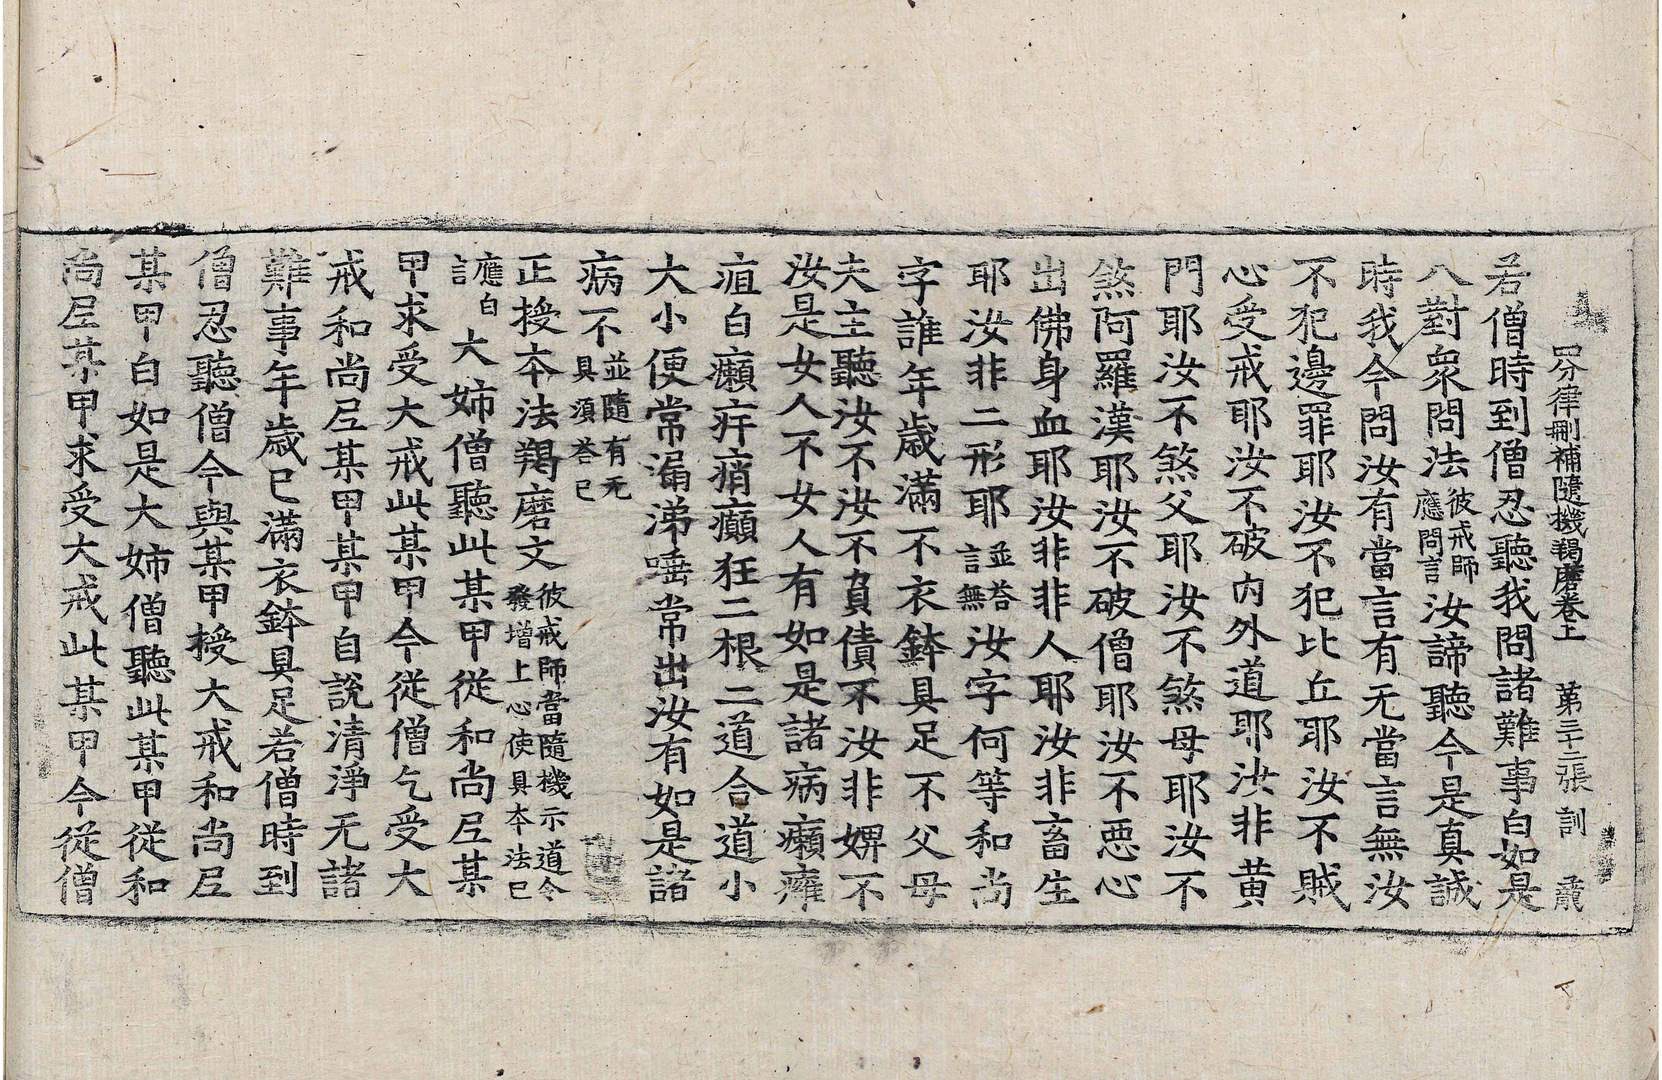 四分律刪補隨機羯磨卷上　第三十二張　訓
若僧時到僧忍聽我問諸難事白如是
八對衆問法彼戒師應問言汝諦聽今是真誠
時我今問汝有當言有无當言無汝
不犯邊罪耶汝不犯比丘耶汝不賊
心受戒耶汝不破内外道耶汝非黄
門耶汝不煞父耶汝不煞母耶汝不
煞阿羅漢耶汝不破僧耶汝不惡心
出佛身血耶汝非非人耶汝非畜生
耶汝非二形耶並荅言無汝字何等和尚
字誰年歲滿不衣鉢具足不父母
夫主聽汝不汝不負債不汝非婢不
汝是女人不女人有如是諸病癩癰
疽白癩痟癲狂二根二道合道小
大小便常漏涕唾常出汝有如是諸
病不並隨有无具須荅已
正授本法羯磨文彼戒師當隨機示道令發增上心使具本法已
應白言大姊僧聽此某甲從和尚尼某
甲求受大戒此某甲今從僧乞受大
戒和尚尼某甲某甲自說清淨无諸
難事年歲已滿衣鉢具足若僧時到
僧忍聽僧今與某甲授大戒和尚尼
某甲白如是大姊僧聽此某甲從和
尚尼某甲求受大戒此某甲今從僧